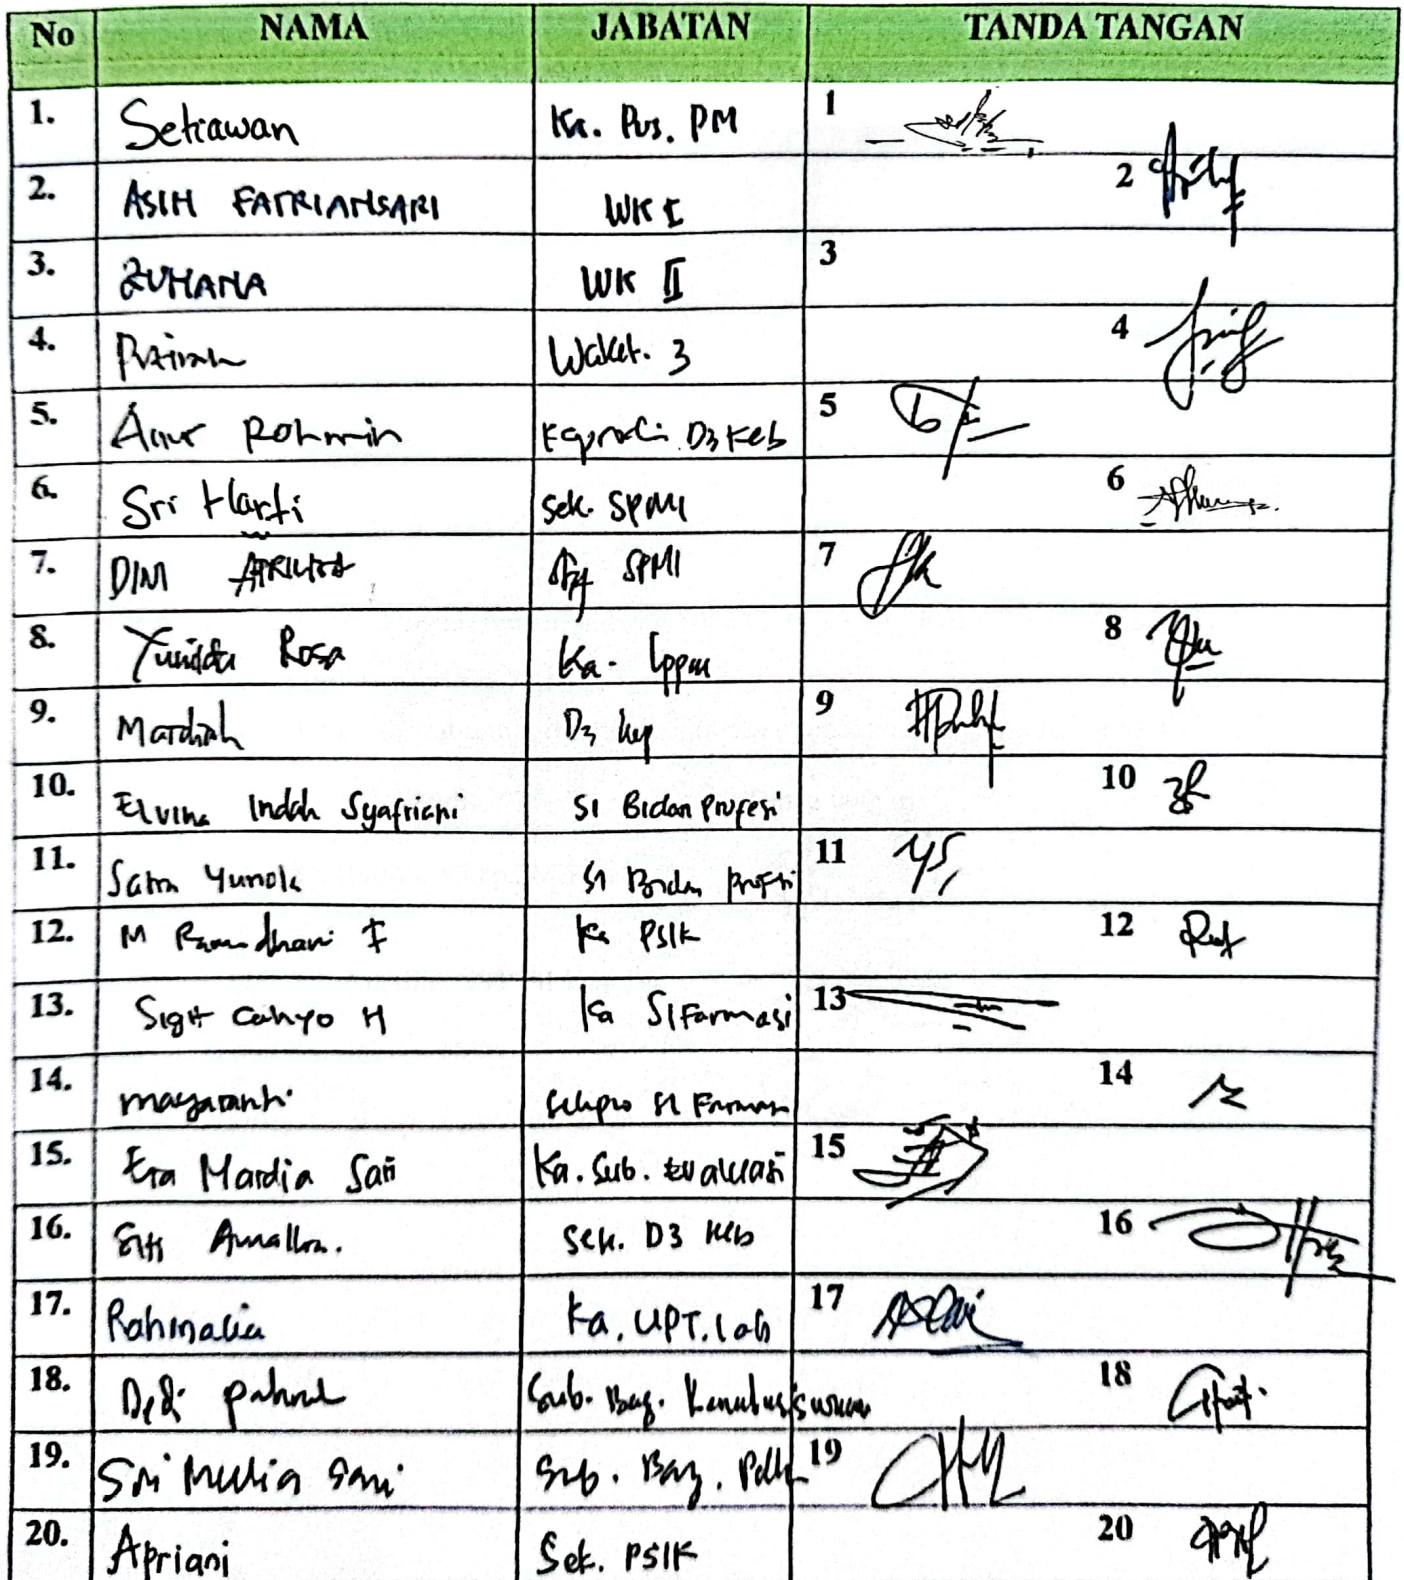 No NAMA JABATAN TANDA TANGAN
1. Setiawan Ka. Pus. PM 1
2. ASIH FATRIANSARI WK I 2
3. ZUHANA WK II 3
4. Waket. 3 4
5. Ainur Rohmin Kaprodi D3 Keb 5
6. Sri Harti Sek. SPMI 6
7. DIM APRILITA SPMI 7
8. Rosa Ka. lppm 8
9. Mardiah D3 kep 9
10. Elvina Indah Syafriani S1 Bidan Profesi 10
11. Satra Yunola S1 Bidan Profesi 11
12. M Ramadhani F Ka PSIK 12
13. Sigit Cahyo H Ka S1 Farmasi 13
14. mayaranti sekpro S1 Farmasi 14
15. Era Mardia Sari Ka. Sub. Evaluasi 15
16. Siti Amallia. Sek. D3 Keb 16
17. Rahmalia Ka. UPT. Lab 17
18. Dedi Sub. Bag. 18
19. Sri Mulia Sari Sub. Bag. 19
20. Apriani Sek. PSIK 20